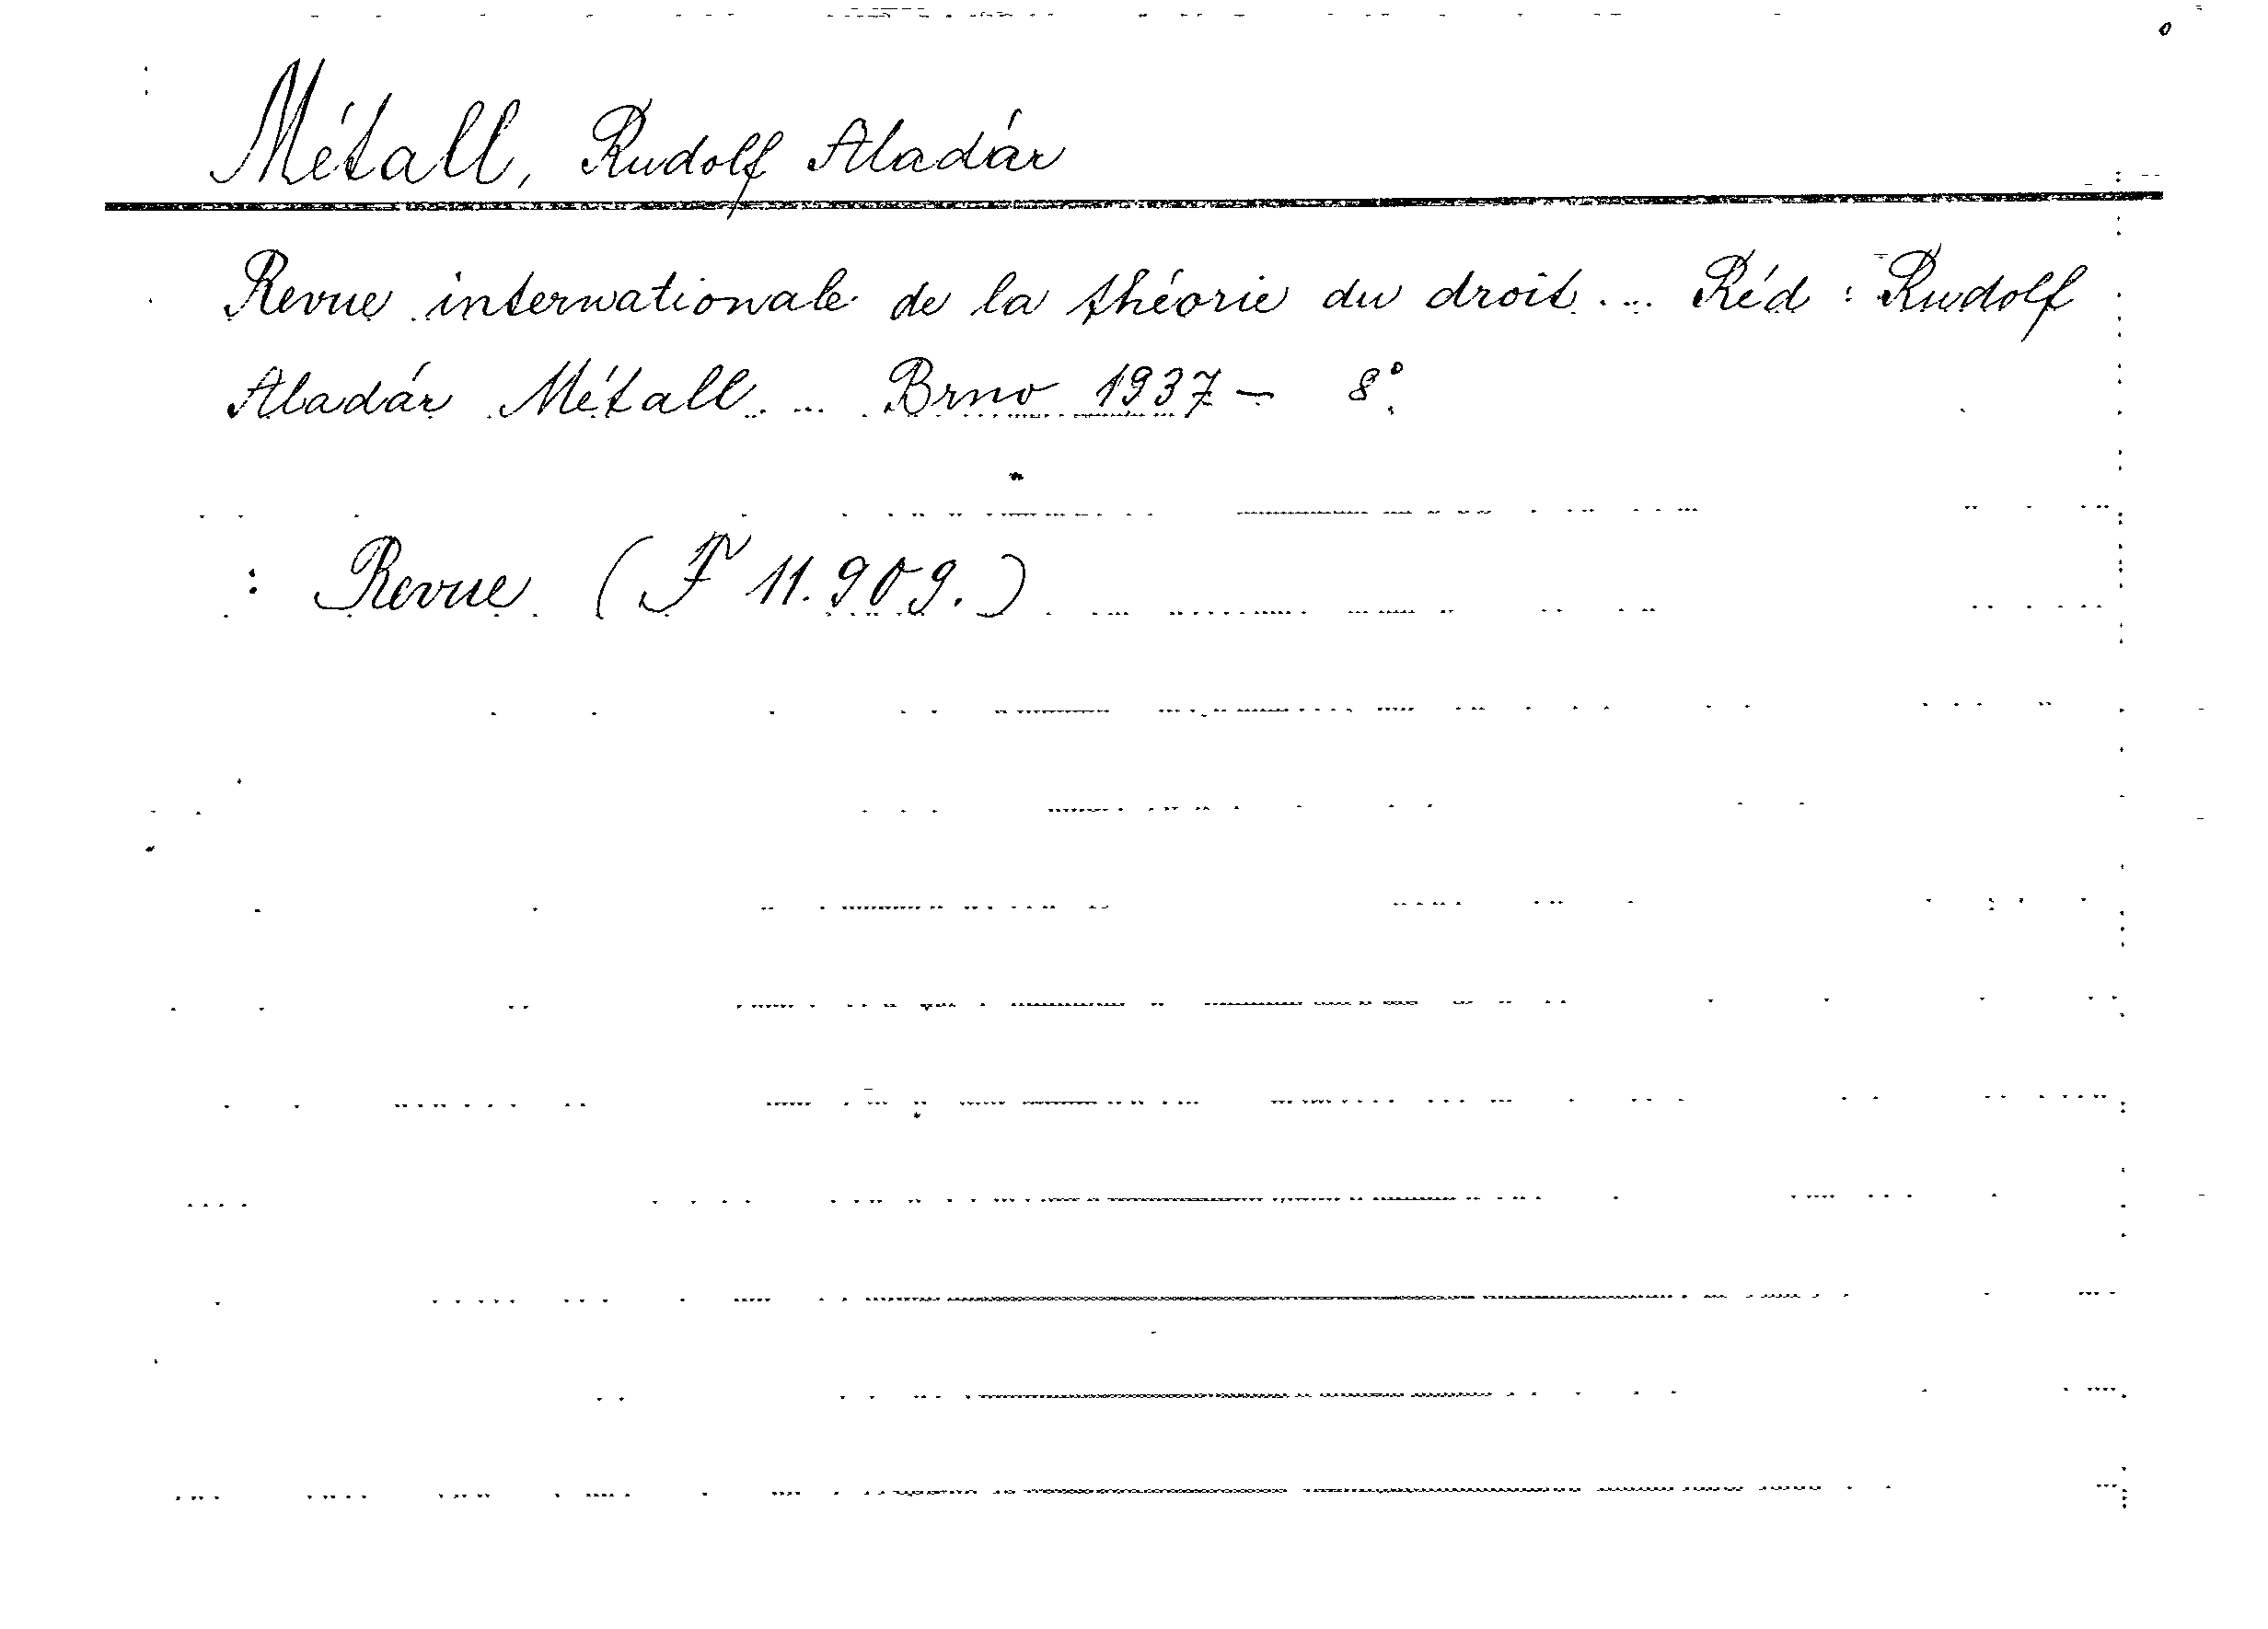 Métall, Rudolf Aladár
Revue internationale de la théorie du droit. ... Réd: Rudolf
Aladár Métall. ... Brno 1937 – 8°.
: Revue (F 11.909.)